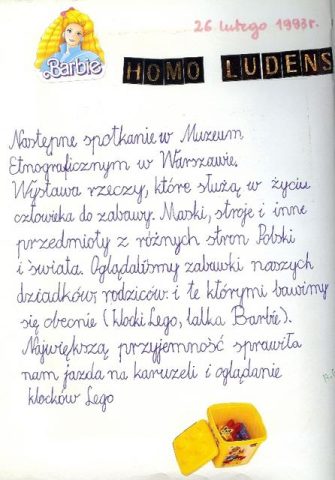 26 lutego 1993 r.
Barbie
HOMO LUDENS
Następne spotkanie w Muzeum
Etnograficznym w Warszawie.
Wystawa rzeczy, które służą w życiu
człowieka do zabawy. Maski, stroje i inne
przedmioty z różnych stron Polski
i świata. Oglądaliśmy zabawki naszych
dziadków, rodziców i te którymi bawimy
się obecnie (klocki Lego, lalka Barbie).
Największą przyjemność sprawiła
nam jazda na karuzeli i oglądanie
klocków Lego